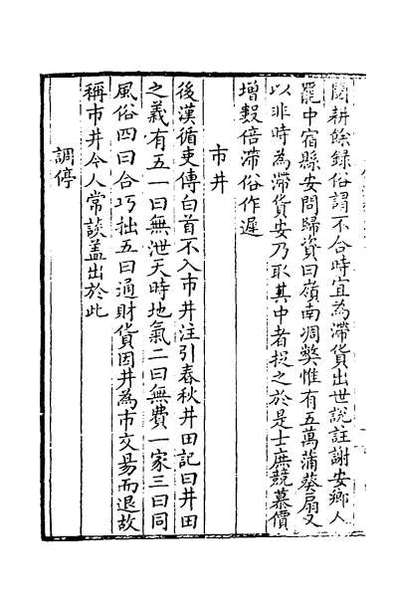 閱耕餘錄俗謂不合時宜為滯貨出世說註謝安鄉人
罷中宿縣安問歸資曰嶺南凋弊惟有五萬蒲葵扇又
以非時為滯貨安乃取其中者捉之於是士庶競慕價
增數倍滯俗作遲
市井
後漢循吏傳白首不入市井注引春秋井田記曰井田
之義有五一曰無泄天時地氣二曰無費一家三曰同
風俗四曰合巧拙五曰通財貨因井為市交易而退故
稱市井今人常談盖出於此
調停